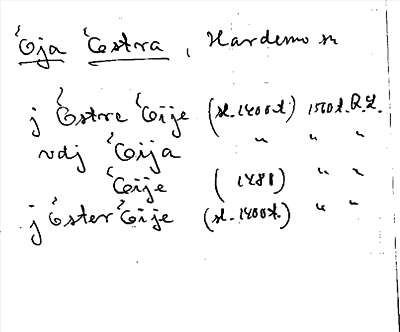 Öija Östra, Hardemo sn
j Östre Öije (sl. 1400 t) 1500 t. R.L.
vdj Öija " " "
Öije (1481) " "
j Öster Öije (sl. 1400 t.) " "